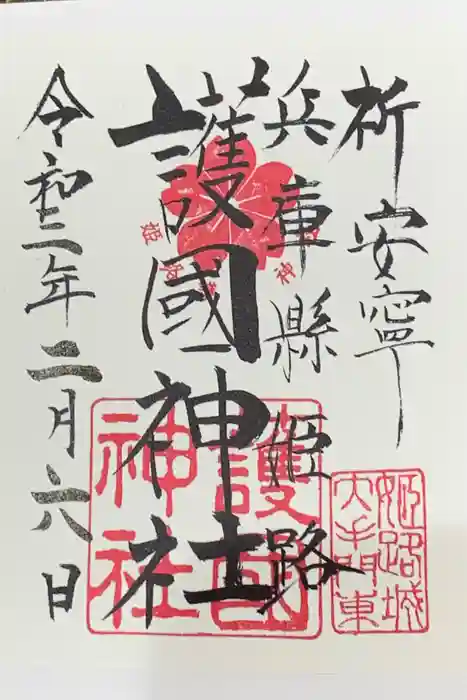 祈安寧
兵庫縣姫路
護國神社
令和三年二月六日
護國
神社
姫路城
大手門東